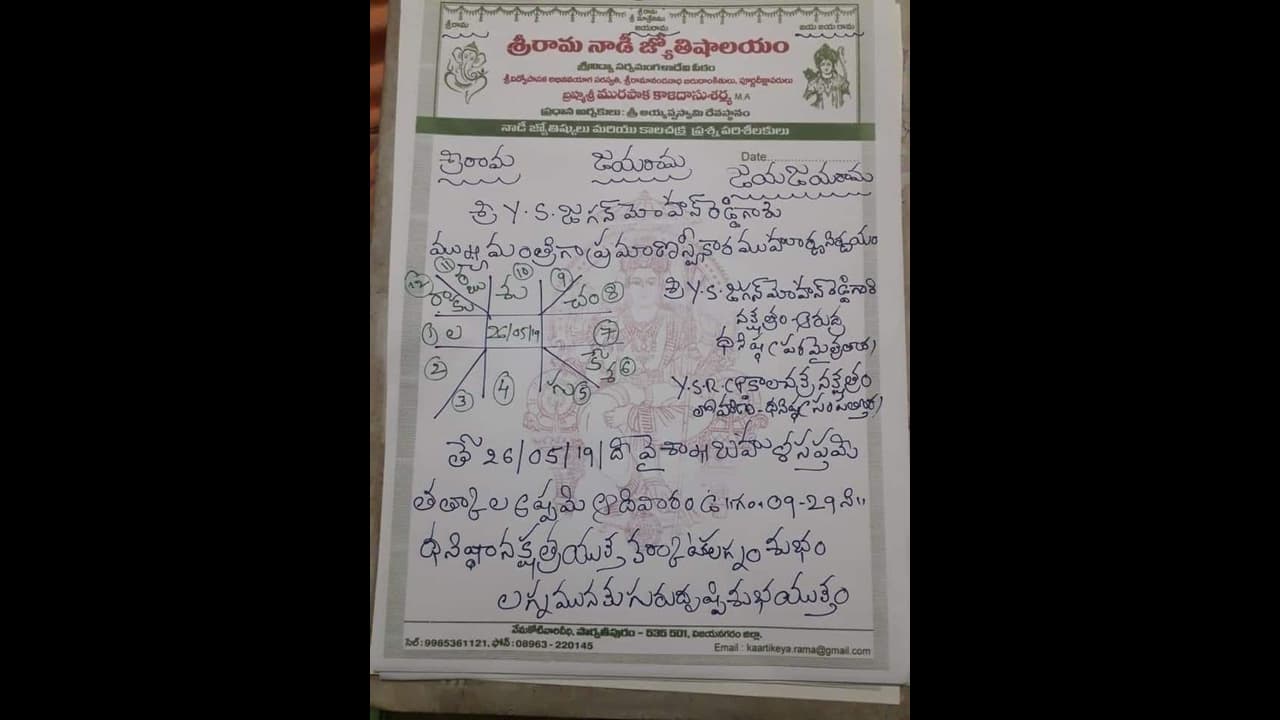 శ్రీరామ
శ్రీరామ
జయరామ
జయ జయ రామ
శ్రీరామ నాడీ జ్యోతిషాలయం
శ్రీవిద్యా సర్వమంగళాదేవి పీఠం
బ్రహ్మశ్రీ మురపాక కాళిదాసుశర్మ M.A
ప్రధాన అర్చకులు : శ్రీ అయ్యప్పస్వామి దేవస్థానం
నాడీ జ్యోతిష్కులు మరియు కాలచక్ర ప్రశ్న పరిశీలకులు
Date....................
శ్రీరామ జయరామ జయజయరామ
శ్రీ Y.S. జగన్ మోహన్ రెడ్డిగారు
ముఖ్యమంత్రిగా ప్రమాణస్వీకార ముహూర్తనిశ్చయం
12 11 10 9
రాకు శు చం 8
1 ల 26/05/19 7
2 కే శ 6
3 4 గు 5
శ్రీ Y.S. జగన్ మోహన్ రెడ్డిగారి
నక్షత్రం - ఆరుద్ర
ధనిష్ఠ (పరమైత్రతార)
Y.S.R.CP కాలచక్ర నక్షత్రం
రోహిణి - ధనిష్ఠ (సంపత్తార)
తే 26/05/19/ది వైశాఖ బహుళసప్తమి
తత్కాల అష్టమి ఆదివారం ఉ॥గం॥ 09-29 ని॥
ధనిష్ఠానక్షత్రయుక్త కర్కాటలగ్నం శుభం
లగ్నమునకు గురుదృష్టి శుభయుక్తం
వేమకోటివారివీధి, పార్వతీపురం - 535 501, విజయనగరం జిల్లా.
సెల్ : 9985361121, ఫోన్ : 08963 - 220145 Email : kaartikeya.rama@gmail.com